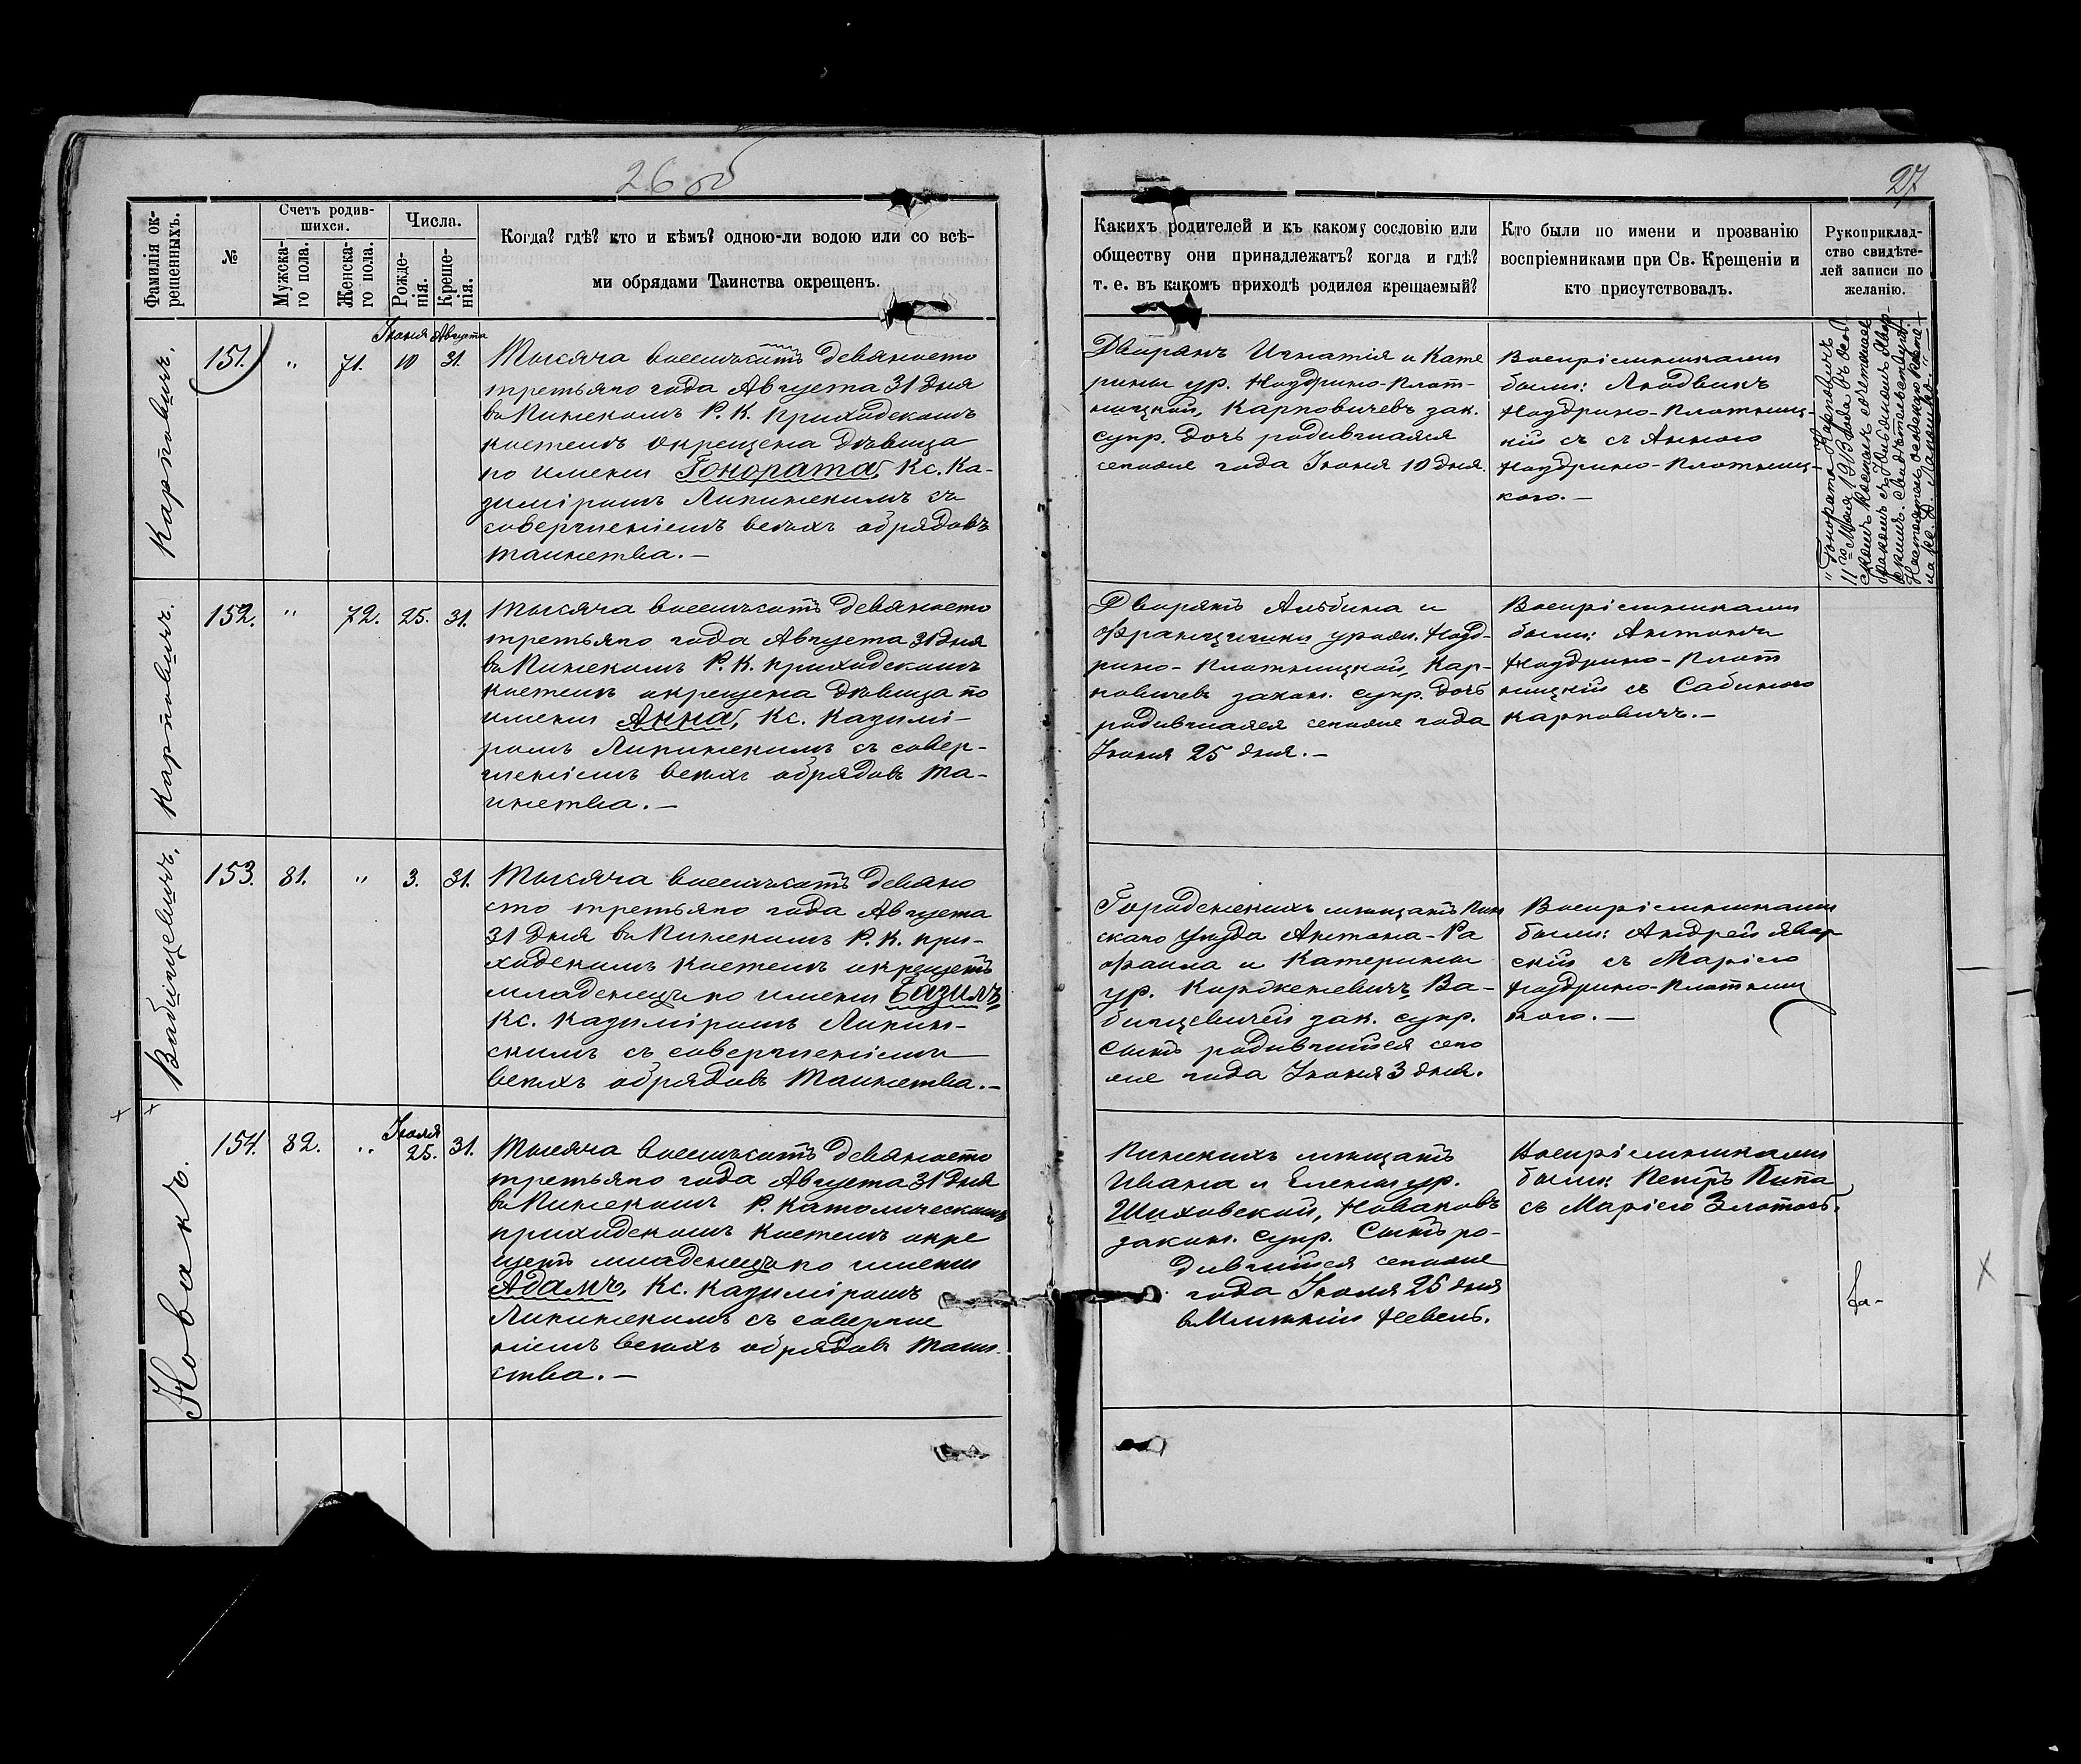 26 об
27
Фамилія ок-
рещенныхъ.
№
Счетъ родив-
шихся.
Мужска-
го пола.
Женска-
го пола.
Числа.
Рожде-
нія.
Креще-
нія.
Когда? гдѣ? кто и кѣмъ? одною-ли водою или со всѣ-
ми обрядами Таинства окрещенъ.
Какихъ родителей и къ какому сословію или
обществу они принадлежатъ? когда и гдѣ?
т. е. въ какомъ приходѣ родился крещаемый?
Кто были по имени и прозванію
воспріемниками при Св. Крещеніи и
кто присутствовалъ.
Рукоприклад-
ство свидѣте-
лей записи по
желанію.
Карповичъ.
151.
"
71.
Іюня
10
Августа
31.
Тысяча восемьсотъ девяносто
третьяго года Августа 31 дня
въ Пинскомъ Р. К. приходскомъ
костелѣ окрещена дѣвица
по имени Гонората, Кс. Ка-
зиміромъ Липинскимъ съ
совершеніемъ всѣхъ обрядовъ
таинства. —
Дворянъ Игнатія и Кате
рины ур. Ноздрино-Плот-
ницкой, Карповичевъ зак.
супр. дочь родившаяся
сегоже года Іюня 10 дня.
Воспріемниками
были: Людвикъ
Ноздрино-Плотниц-
кій съ Анною
Ноздрино-Плотниц-
кою. —
"Гонората Карповичъ
11го Мая 1913 года въ
скомъ костелѣ сочетана
бракомъ съ
Карповичъ.
152.
"
72.
25.
31.
Тысяча восемьсотъ девяносто
третьяго года Августа 31 дня
въ Пинскомъ Р. К. приходскомъ
костелѣ окрещена дѣвица по
имени Анна, Кс. Казимі-
ромъ Липинскимъ съ совер-
шеніемъ всѣхъ обрядовъ та-
инства. —
Дворянъ Альбина и
Францишки урожд. Нозд-
рино-Плотницкой, Кар-
повичевъ закон. супр. дочь
родившаяся сегоже года
Іюня 25 дня. —
Воспріемниками
были: Антонъ
Ноздрино-Плот
ницкій съ Сабиною
Карповичъ. —
Вабищевичъ.
153.
81.
"
3.
31.
Тысяча восемьсотъ девяно
сто третьяго года Августа
31 дня въ Пинскомъ Р. К. при-
ходскомъ костелѣ окрещенъ
младенецъ по имени Базиль,
Кс. Казиміромъ Липин-
скимъ съ совершеніемъ
всѣхъ обрядовъ Таинства. —
Городенскихъ мѣщанъ Пин
скаго уѣзда Антона-Ра
фаила и Катерины
ур. Ва-
бищевичей зак. супр.
Сынъ родившійся сего
же года Іюня 3 дня.
Воспріемниками
были: Андрей Явор
скій съ Маріею
Ноздрино-Плотниц
кою. —
Новакъ.
154.
82.
"
Іюля
25.
31.
Тысяча восемьсотъ девяносто
третьяго года Августа 31 дня
въ Пинскомъ Р. Католическомъ
приходскомъ костелѣ окре
щенъ младенецъ по имени
Адамъ, Кс. Казиміромъ
Липинскимъ съ соверше
ніемъ всѣхъ обрядовъ таин
ства. —
Пинскихъ мѣщанъ
Ивана и Елены ур.
Шиховской, Новаковъ
закон. супр. Сынъ ро-
дившійся сегоже
года Іюля 25 дня
въ Имѣніи Невель.
Воспріемниками
были: Петръ Пипа
съ Маріею Злотою.